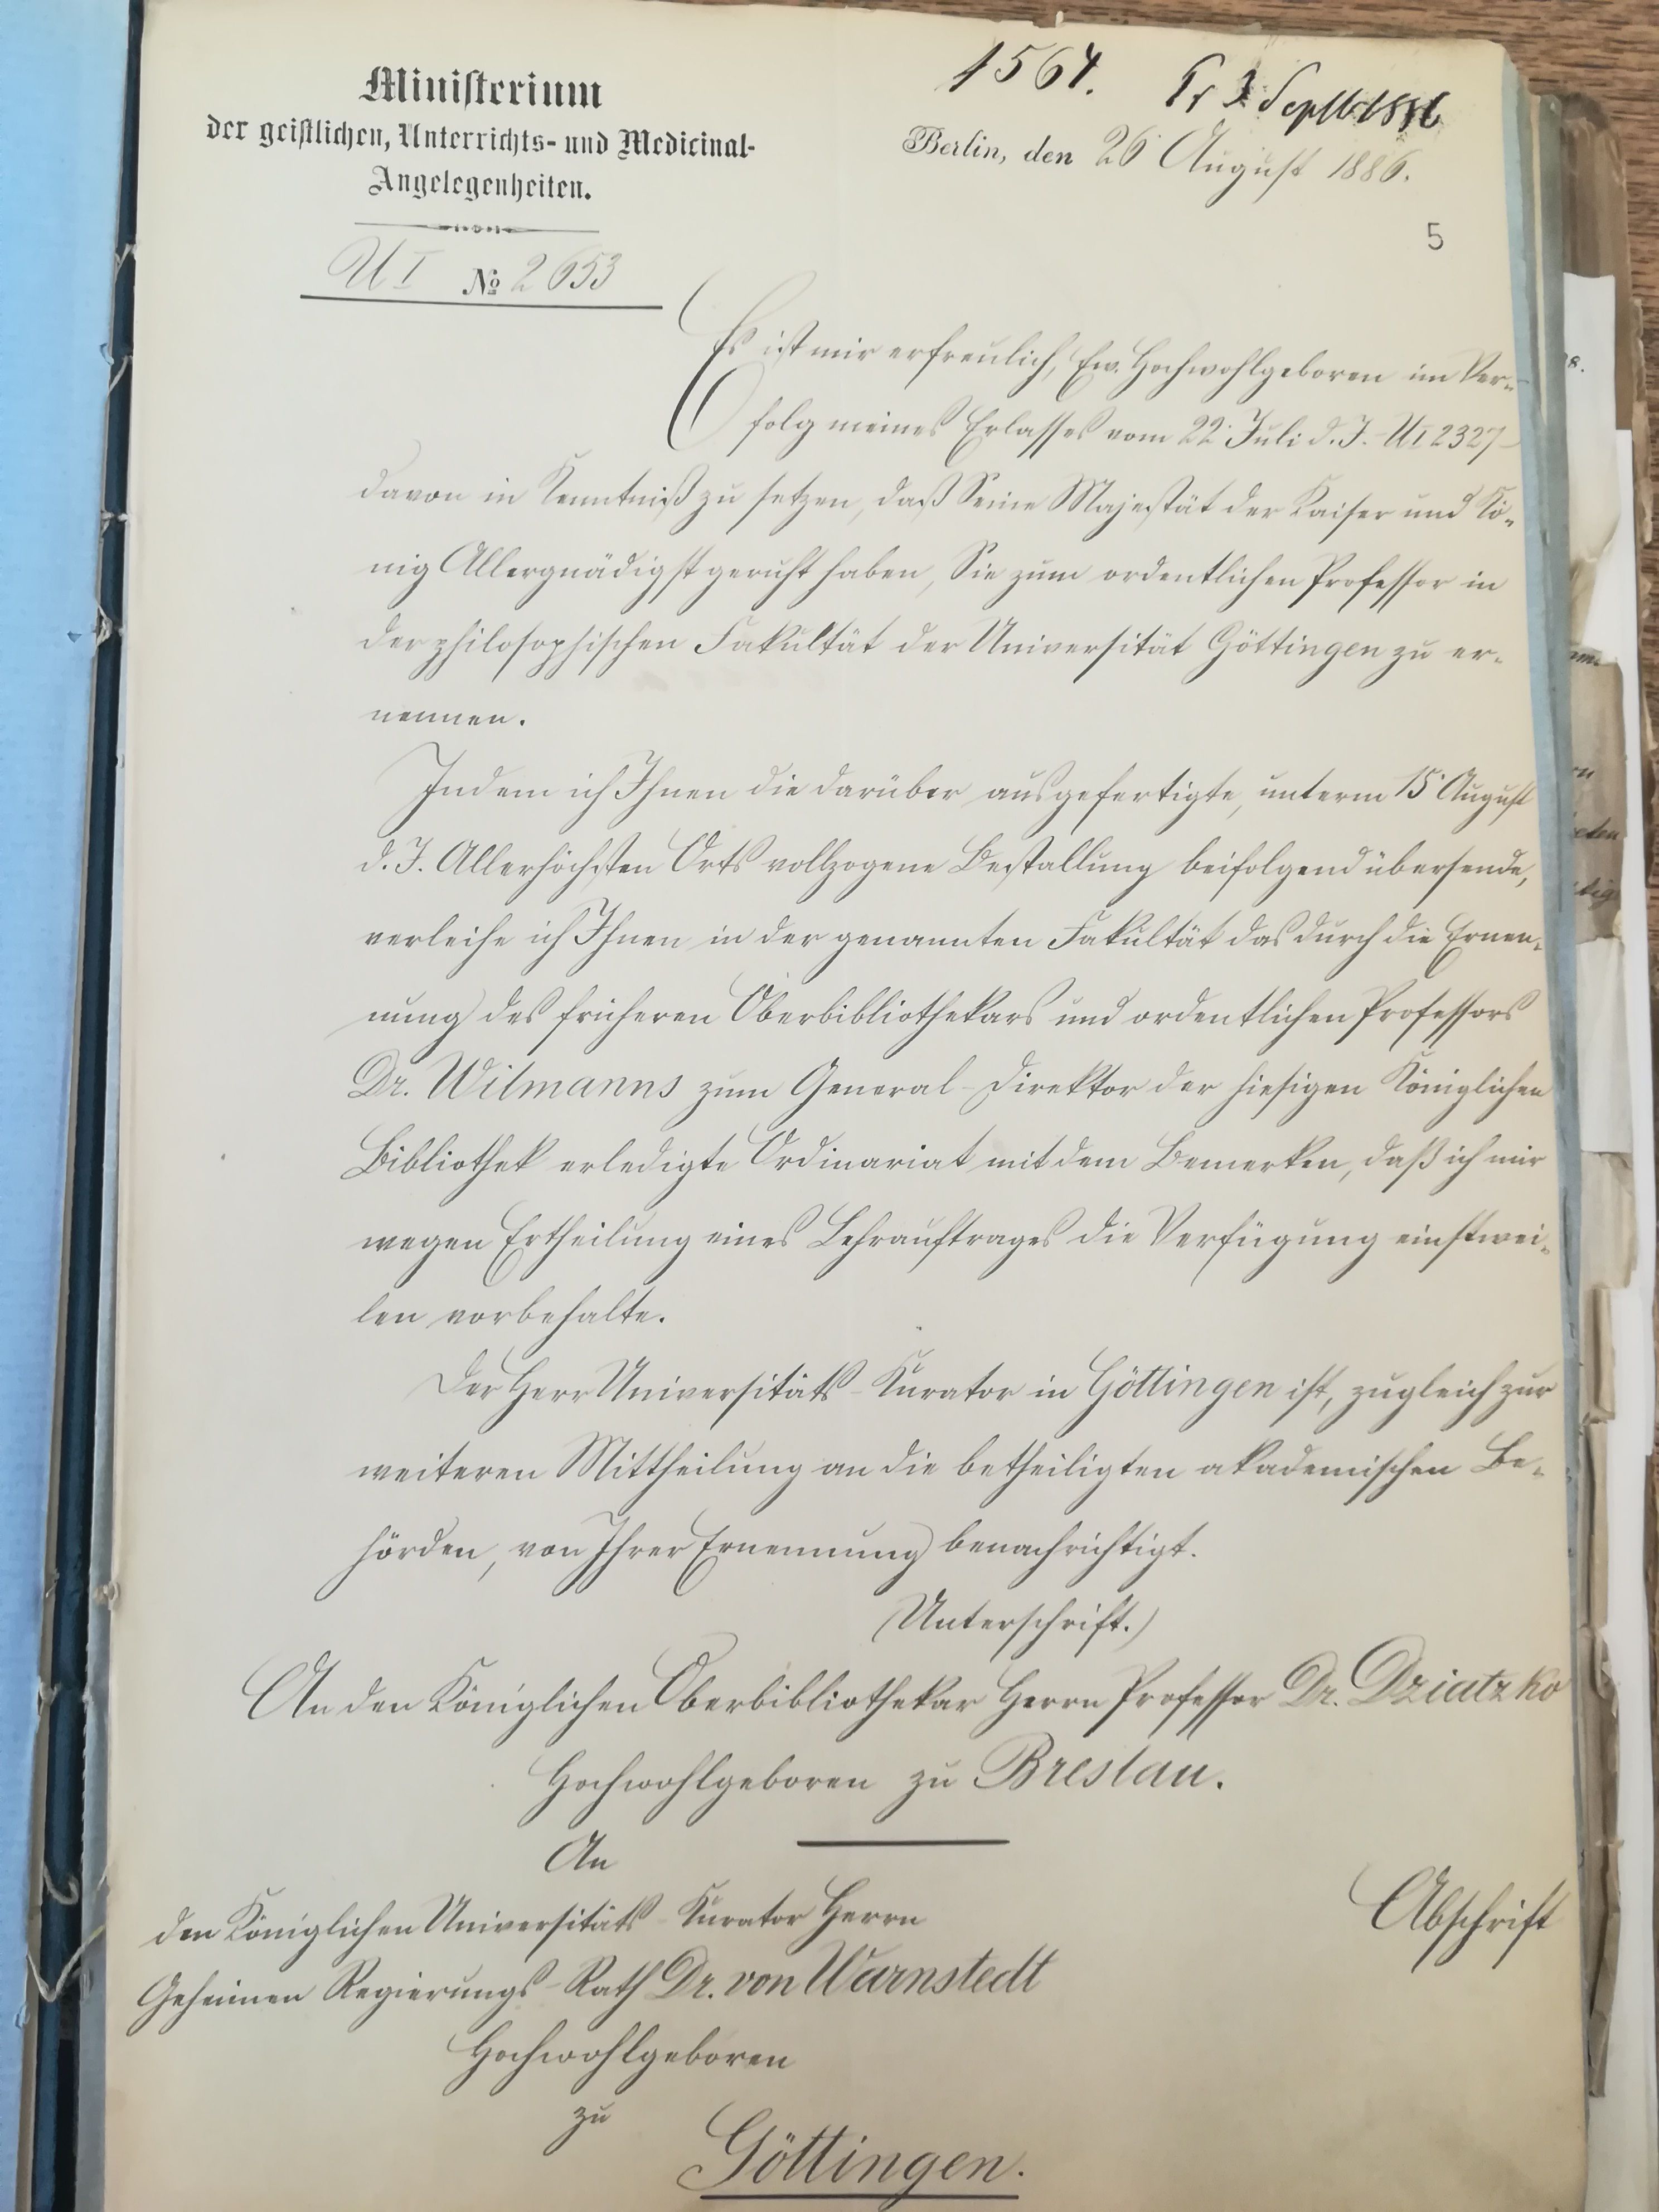 Ministerium
der geistlichen, Unterrichts- und Medicinal-
Angelegenheiten.
U I № 2653
1564.
Pr 3 Septb 1886
Berlin, den 26 August 1886.
5
Es ist mir erfreulich, Ew. Hochwohlgeboren im Ver-
folg meines Erlasses vom 22. Juli d. J. - U I 2327 -
davon in Kenntniß zu setzen, daß Seine Majestät der Kaiser und Kö-
nig Allergnädigst geruht haben, Sie zum ordentlichen Professor in
der philosophischen Fakultät der Universität Göttingen zu er-
nennen.
Indem ich Ihnen die darüber ausgefertigte, unterm 15. August
d. J. Allerhöchsten Orts vollzogene Bestallung beifolgend übersende,
verleihe ich Ihnen in der genannten Fakultät das durch die Ernen-
nung des früheren Oberbibliothekars und ordentlichen Professors
Dr. Wilmanns zum General-Direktor der hiesigen Königlichen
Bibliothek erledigte Ordinariat mit dem Bemerken, daß ich mir
wegen Ertheilung eines Lehrauftrages die Verfügung einstwei-
len vorbehalte.
Der Herr Universitäts-Kurator in Göttingen ist, zugleich zur
weiteren Mittheilung an die betheiligten akademischen Be-
hörden, von Ihrer Ernennung benachrichtigt.
(Unterschrift.)
An den Königlichen Oberbibliothekar Herrn Professor Dr. Dziatzko
Hochwohlgeboren zu Breslau.
An
den Königlichen Universitäts-Kurator Herrn
Geheimen Regierungs-Rath Dr. von Warnstedt
Hochwohlgeboren
zu
Göttingen.
Abschrift